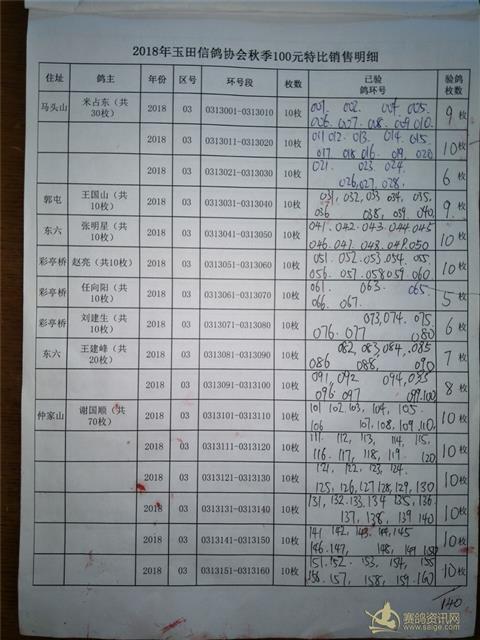 2018年玉田信鸽协会秋季100元特比销售明细
住址 鸽主 年份 区号 环号段 枚数 已验鸽环号 验鸽枚数
马头山 米占东（共30枚） 2018 03 0313001-0313010 10枚 001. 002. 004. 005. 9枚
006. 007. 008. 009. 010.
2018 03 0313011-0313020 10枚 011 012. 013. 014. 015. 10枚
017. 018 016. 019. 020
2018 03 0313021-0313030 10枚 021. 023. 024. 6枚
026. 027. 028.
郭屯 王国山（共10枚） 2018 03 0313031-0313040 10枚 031, 032, 033, 034, 035, 9枚
036 038, 039. 040.
东六 张明星（共10枚） 2018 03 0313041-0313050 10枚 041. 042. 043. 044. 045 10枚
046. 047. 048. 049. 050
彩亭桥 赵亮（共10枚） 2018 03 0313051-0313060 10枚 051. 052. 053. 054. 055. 10枚
056. 057. 058 059. 060
彩亭桥 任向阳（共10枚） 2018 03 0313061-0313070 10枚 061. 063. 065. 5枚
066. 067.
彩亭桥 刘建生（共10枚） 2018 03 0313071-0313080 10枚 073, 074. 075. 6枚
076. 077 080
东六 王建峰（共20枚） 2018 03 0313081-0313090 10枚 082, 083, 084, 085 7枚
086 088, 090
2018 03 0313091-0313100 10枚 091, 092 094, 8枚
096. 097 099. 100
仲家山 谢国顺（共70枚） 2018 03 0313101-0313110 10枚 101 102. 103, 104, 105. 10枚
106 107, 108, 109, 110,
2018 03 0313111-0313120 10枚 111. 112, 113, 114, 115, 10枚
116. 117, 118, 119. 120
2018 03 0313121-0313130 10枚 121, 122, 123, 124. 10枚
125, 126, 127 128, 129, 130
2018 03 0313131-0313140 10枚 131, 132. 133, 134 135, 136. 10枚
137, 138, 139 140
2018 03 0313141-0313150 10枚 141 142, 143. 144, 145 10枚
146. 147, 148, 149 150
2018 03 0313151-0313160 10枚 151. 152. 153, 154, 155 10枚
156. 157, 158, 159. 160
140
赛鸽资讯网
www.saige.com